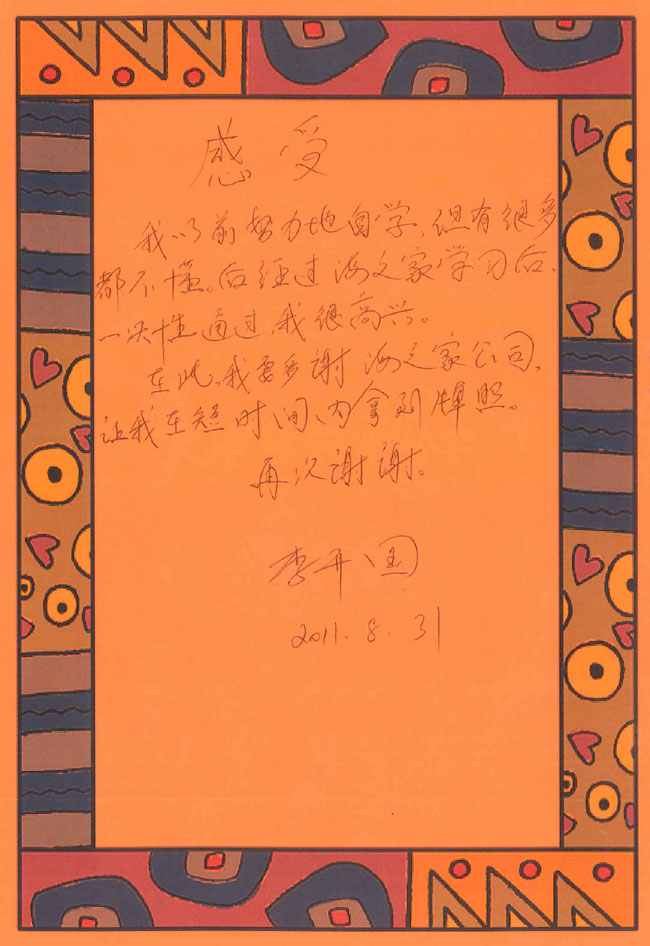 感受
我以前努力地自学,但有很多
都不懂。后经过海文家学习后、
一次性通过,我很高兴。
在此,我要多谢海文家公司,
让我在短时间内拿到牌照。
再次谢谢。
李开国
2011.8.31